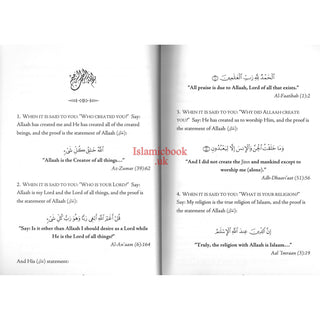 1. WHEN IT IS SAID TO YOU: "WHO CREATED YOU?" Say:
Allaah has created me and He has created all of the created
beings, and the proof is the statement of Allaah (ﷻ):
اللَّهُ خَالِقُ كُلِّ شَيْءٍ
"Allaah is the Creator of all things..."
Az-Zumar (39):62
2. WHEN IT IS SAID TO YOU: "WHO IS YOUR LORD?" Say:
Allaah is my Lord and the Lord of all things, and the proof is
the statement of Allaah (ﷻ):
قُلْ أَغَيْرَ اللَّهِ أَبْغِي رَبًّا وَهُوَ رَبُّ كُلِّ شَيْءٍ
"Say: Is it other than Allaah I should desire as a Lord while
He is the Lord of all things?"
Al-An'aam (6):164
And His (ﷻ) statement:
الْحَمْدُ لِلَّهِ رَبِّ الْعَالَمِينَ
"All praise is due to Allaah, Lord of all that exists."
Al-Faatihah (1):2
3. WHEN IT IS SAID TO YOU: "WHY DID ALLAAH CREATE
YOU?" Say: He has created us to worship Him, and the proof is
the statement of Allaah (ﷻ):
وَمَا خَلَقْتُ الْجِنَّ وَالْإِنسَ إِلَّا لِيَعْبُدُونِ
"And I did not create the Jinn and mankind except to
worship me (alone)."
Adh-Dhaari'aat (51):56
4. WHEN IT IS SAID TO YOU: "WHAT IS YOUR RELIGION?"
Say: My religion is the true religion of Islaam, and the proof is
the statement of Allaah (ﷻ):
إِنَّ الدِّينَ عِندَ اللَّهِ الْإِسْلَامُ
"Truly, the religion with Allaah is Islaam..."
Aal 'Imraan (3):19
Islamicbook
.uk